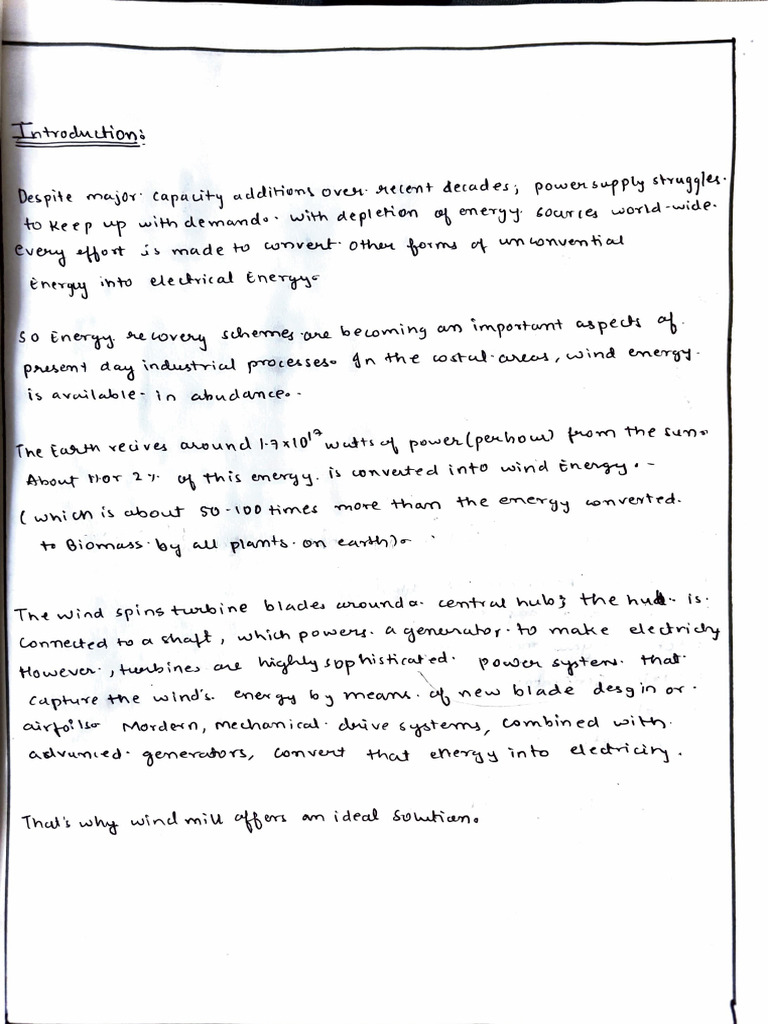 Introduction:
Despite major capacity additions over recent decades; power supply struggles.
to keep up with demand. with depletion of energy sources world-wide.
every effort is made to convert other forms of unconvential
Energy into electrical Energy.
So Energy recovery schemes are becoming an important aspects of
present day industrial processes. In the costal areas, wind energy.
is available in abudance.
The Earth recives around 1.7x10¹⁷ watts of power (per hour) from the sun.
About 1 or 2% of this energy. is converted into wind Energy. -
(which is about 50-100 times more than the energy converted.
to Biomass by all plants on earth).
The wind spins turbine blades around a central hub; the hub is.
connected to a shaft, which powers a generator to make electricity
However, turbines are highly sophisticated. power system that
capture the wind's energy by means of new blade desgin or
airfoils. Mordern, mechanical drive systems, combined with
advanced generators, convert that energy into electricity.
That's why wind mill offers an ideal solution.